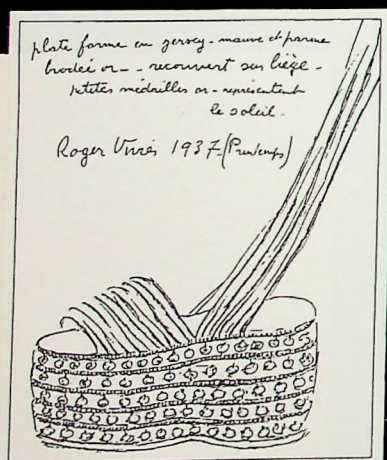 plate forme en jersey - mauve et parme
brodée or - - recouvert sur liège -
petites médailles or - représentent
le soleil -
Roger Vivier 1937 - (Printemps)